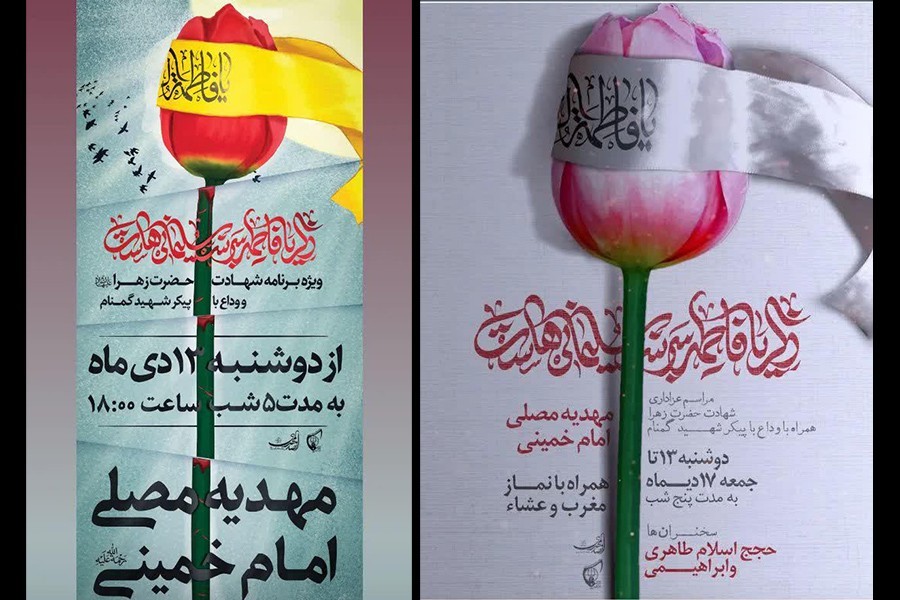 یا فاطمة
ذکر یا فاطمه سربند سلیمانی هاست
ویژه برنامه شهادت حضرت زهرا
و وداع با پیکر شهید گمنام
از دوشنبه ۱۳ دی ماه
به مدت ۵ شب ساعت ۱۸:۰۰
مهدیه مصلی
امام خمینی رحمة الله علیه
یا فاطمة
ذکر یا فاطمه سربند سلیمانی هاست
مراسم عزاداری
شهادت حضرت زهرا
همراه با وداع با پیکر شهید گمنام
دوشنبه ۱۳ تا
جمعه ۱۷ دیماه
به مدت پنج شب
سخنران ها
حجج اسلام طاهری
و ابراهیمی
مهدیه مصلی
امام خمینی
همراه با نماز
مغرب و عشاء